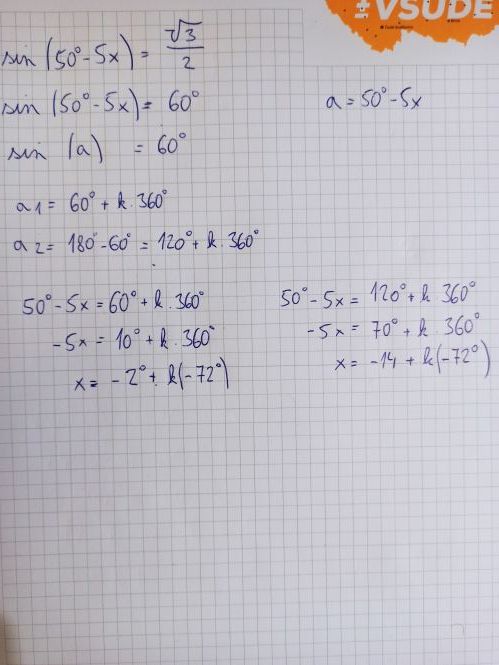 ±VSUDE
sin (50°-5x) = √3/2
sin (50°-5x) = 60°
a = 50°-5x
sin (a) = 60°
a1 = 60° + k.360°
a2 = 180°-60° = 120° + k.360°
50°-5x = 60° + k.360°
-5x = 10° + k.360°
x = -2° + k(-72°)
50°-5x = 120° + k 360°
-5x = 70° + k.360°
x = -14 + k(-72°)